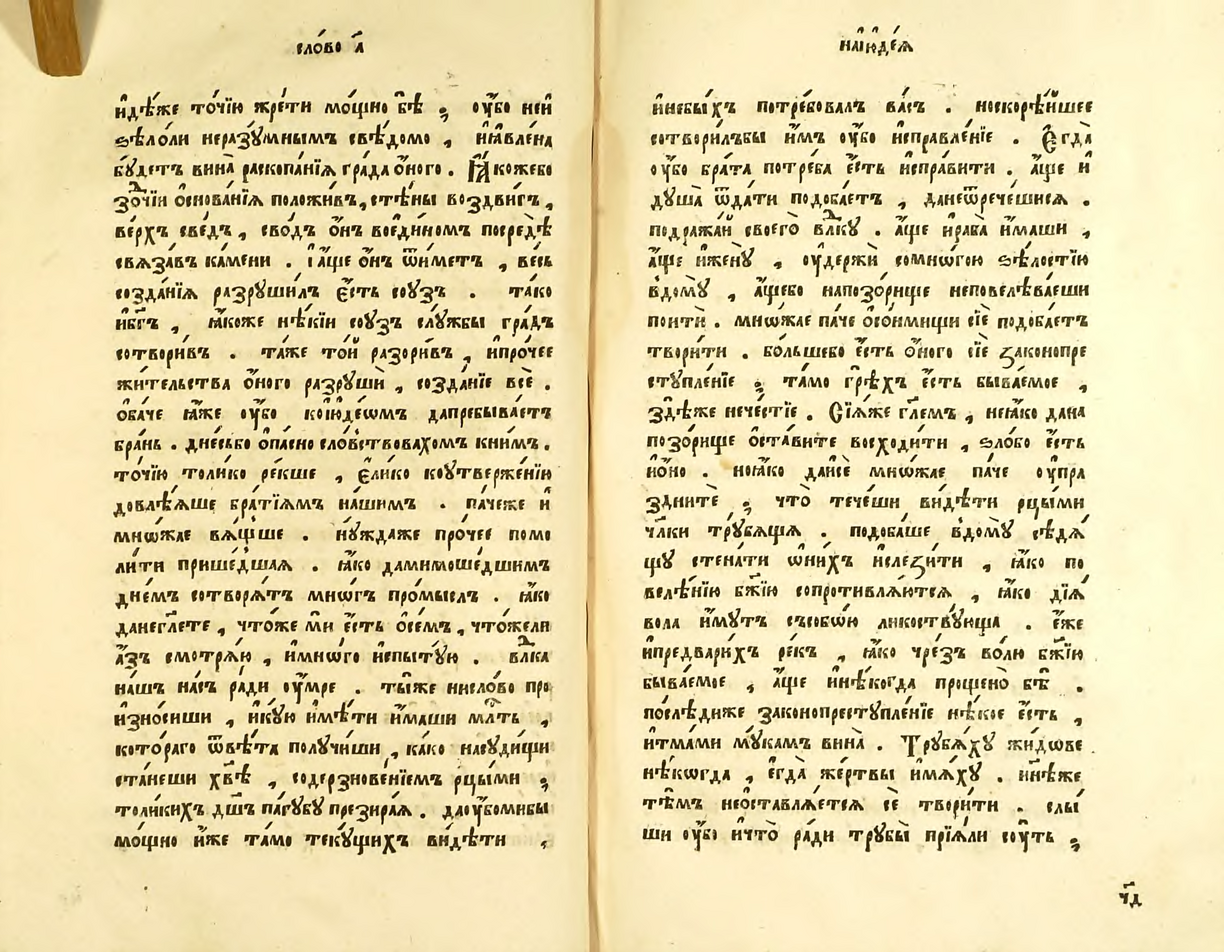 сло́во а҃
и҆дѣ́же то́чїю жре́ти мо́щно бѣ̀ ; ᲂу҆́бо ней
ѕѣ́лѡли неразꙋ́мнымъ свѣ́домо , нїꙗ҆вле́на
бꙋ́детъ вина̀ раскопа́нїѧ гра́да ѻ҆́ного . Ꙗ҆́кожебо
зо́дчїи ѻ҆снова́нїѧ положи́въ, стѣ́ны воздви́гъ ,
ве́рхъ све́дъ , сво́дъ ѻ҆́нъ вое҆ди́номъ посредѣ̀
свѧза́въ ка́мени . і҆а҆́ще ѻ҆́нъ ѿи́метъ , ве́сь
созда́нїѧ разрꙋши́лъ є҆́сть сою́зъ . та́ко
и҆бг҃ъ , ꙗ҆́коже нѣ́кїи сою́зъ слꙋ́жбы гра́дъ
сотвори́въ . та́же то́й разори́въ , и҆про́чее
жи́тельства ѻ҆́ного разрꙋшѝ , созда́нїе всѐ .
ѻ҆ба́че ꙗ҆́же ᲂу҆́бо кої҆ꙋде́ѡмъ дапребыва́етъ
бра́нь . дне́сьбо ѻ҆па́сно сло́вствовахомъ кни́мъ .
то́чїю толи́ко ре́кше , є҆ли́ко коᲂу҆твержє́нїю
довлѣ́ѧше бра́тїѧмъ на́шимъ . па́чеже и҆
мно́жае вѧ́щьше . нꙋ́ждаже про́чее помо
ли́ти прише́дшаѧ . ꙗ҆́ко дамимоше́дшимъ
дне́мъ сотворѧ́тъ мно́гъ про́мыслъ . ꙗ҆́ко
данегл҃ете , что́же мѝ є҆́сть ѻ҆се́мъ , что́жели
а҆́зъ смотрѧ́ю , и҆мно́го и҆спытꙋ́ю . влⷣка
на́шъ на́съ ра́ди ᲂу҆́мре . ты́же нисло́во про
и҆зно́сиши , и҆кꙋ́ю и҆мѣ́ти и҆́маши млⷭ҇ть ,
кото́раго ѿвѣ́та полꙋ́чиши , ка́ко насꙋди́щи
ста́неши хв҃ѣ , содерзнове́нїемъ рцы́ми ;
толи́кихъ дш҃ъ па́гꙋбꙋ презира́ѧ . даᲂу҆́бомибы
мо́щно и҆́же та́мо текꙋ́щихъ ви́дѣти ,
наї҆ꙋде́ѧ
и҆небы́хъ потре́бовалъ ва́съ . носкорѣ́йшее
сотвори́лъбы и҆́мъ ᲂу҆́бо и҆справле́нїе . Є҆гда̀
ᲂу҆́бо бра́та потре́ба є҆́сть и҆спра́вити . а҆́ще и҆
дꙋ́ша ѿда́ти подоба́етъ , данеѿрече́шисѧ .
подража́й своего̀ влⷣкꙋ . а҆́ще и҆раба̀ и҆́маши ,
а҆́ще и҆женꙋ̀ , ᲂу҆держѝ сомно́гою ѕѣ́лостїю
вдомꙋ̀ , а҆́щебо напозо́рище неповелѣва́еши
поитѝ . мно́жае па́че ѻ҆со́нмищи сїѐ подоба́етъ
твори́ти . бо́льшебо є҆́сть ѻ҆́ного сїѐ законопре
стꙋпле́нїе ; та́мо грѣ́хъ є҆́сть быва́емое ,
здѣ́же нече́стїе . Сїѧ́же гл҃емъ , неꙗ҆́ко дана
позо́рище ѻ҆ста́вите восходи́ти , ѕло́бо є҆́сть
и҆о҆́но . ноꙗ҆́ко даисѐ мно́жае па́че ᲂу҆пра
здни́те ; что̀ тече́ши ви́дѣти рцы́ми
чл҃ки трꙋбѧ́щѧ . подоба́ше вдомꙋ̀ сѣдѧ́
щꙋ стена́ти ѡ҆ни́хъ и҆слези́ти , ꙗ҆́ко по
велѣ́нїю бж҃їю сопротивлѧ́ютсѧ , ꙗ҆́ко дїѧ́
вола и҆́мꙋтъ съсобо́ю ликоствꙋ́юща . є҆́же
и҆предвари́хъ ре́къ , ꙗ҆́ко чре́зъ во́лю бж҃їю
быва́емое , а҆́ще и҆нѣ́когда проще́но бѣ̀ .
послѣ́диже законопрестꙋпле́нїе нѣ́кое є҆́сть ,
и҆тма́ми мꙋ́камъ вина̀ . Трꙋбѧ́хꙋ жидо́ве
нѣ́когда , є҆гда̀ же́ртвы и҆мѧ́хꙋ . ни́нѣже
тѣ́мъ неѡставлѧ́етсѧ сѐ твори́ти . слы́
ши ᲂу҆́бо и҆что̀ ра́ди трꙋбы̀ прїѧ́ли сꙋ́ть ;
чд҃